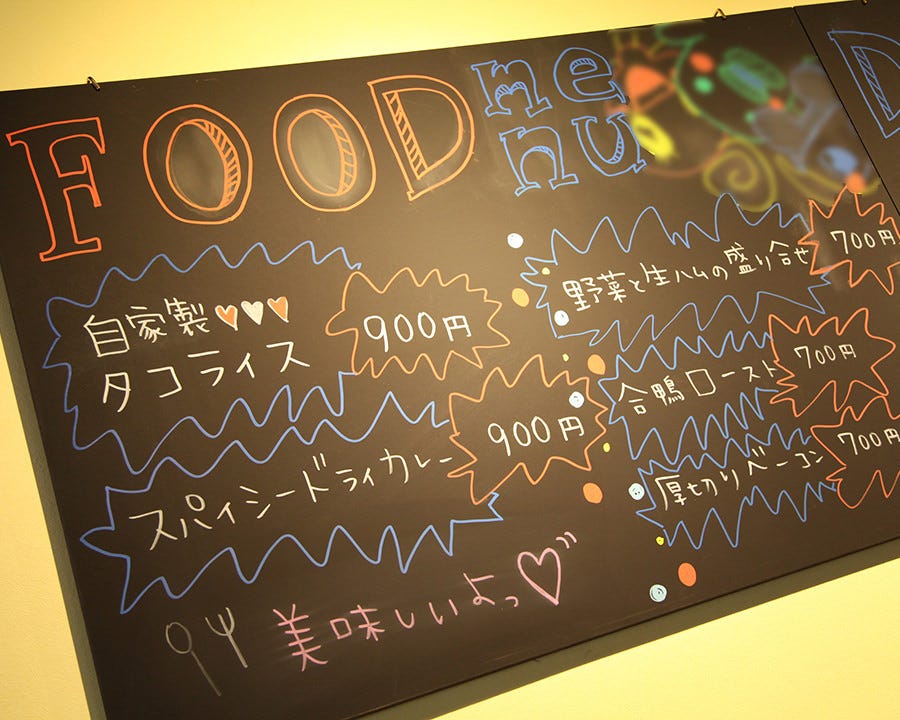 FOOD menu
自家製♥♥♥
タコライス
900円
スパイシードライカレー
900円
野菜と生ハムの盛り合せ
700円
合鴨ロースト
700円
厚切りベーコン
700円
美味しいよっ♡
D